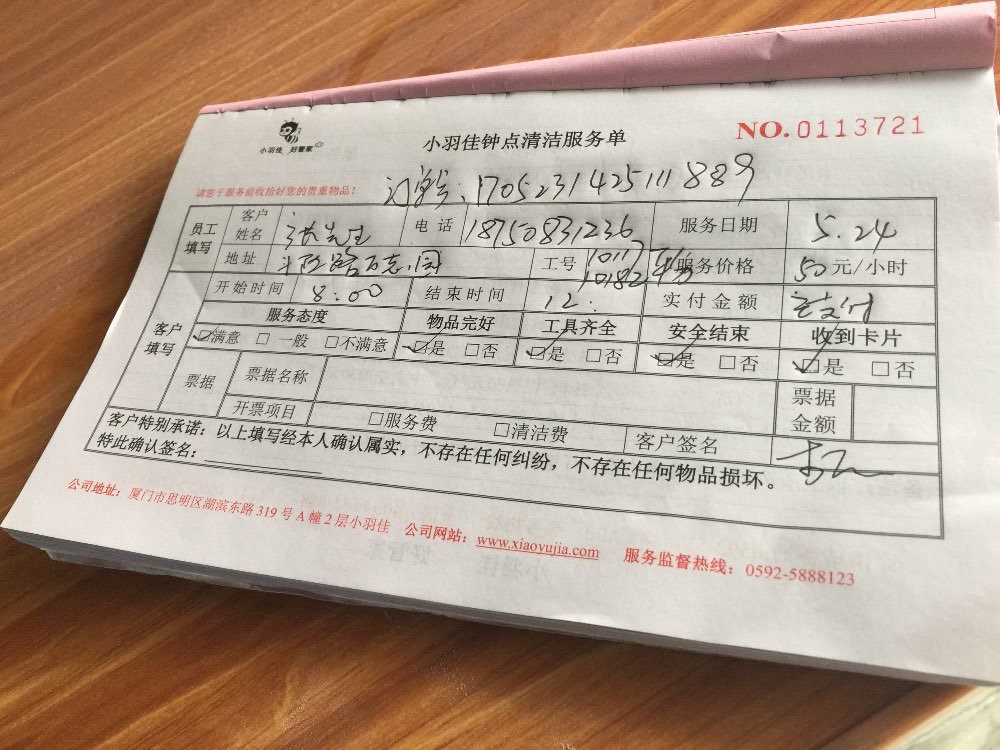 小羽佳 好管家
小羽佳钟点清洁服务单
NO.0113721
请您于服务前收拾好您的贵重物品！
订单号:1705231425111889
员工填写 客户姓名 张先生 电话 18750831236 服务日期 5.24
地址 工号 10117 10182 服务价格 50元/小时
客户填写 开始时间 8:00 结束时间 12: 实付金额 已支付
服务态度 物品完好 工具齐全 安全结束 收到卡片
☑满意 □一般 □不满意 ☑是 □否 ☑是 □否 ☑是 □否 ☑是 □否
票据 票据名称 票据金额
开票项目 □服务费 □清洁费 客户签名
客户特别承诺：以上填写经本人确认属实，不存在任何纠纷，不存在任何物品损坏。
特此确认签名：
公司地址：厦门市思明区湖滨东路 319 号 A 幢 2 层小羽佳 公司网站：www.xiaoyujia.com 服务监督热线：0592-5888123